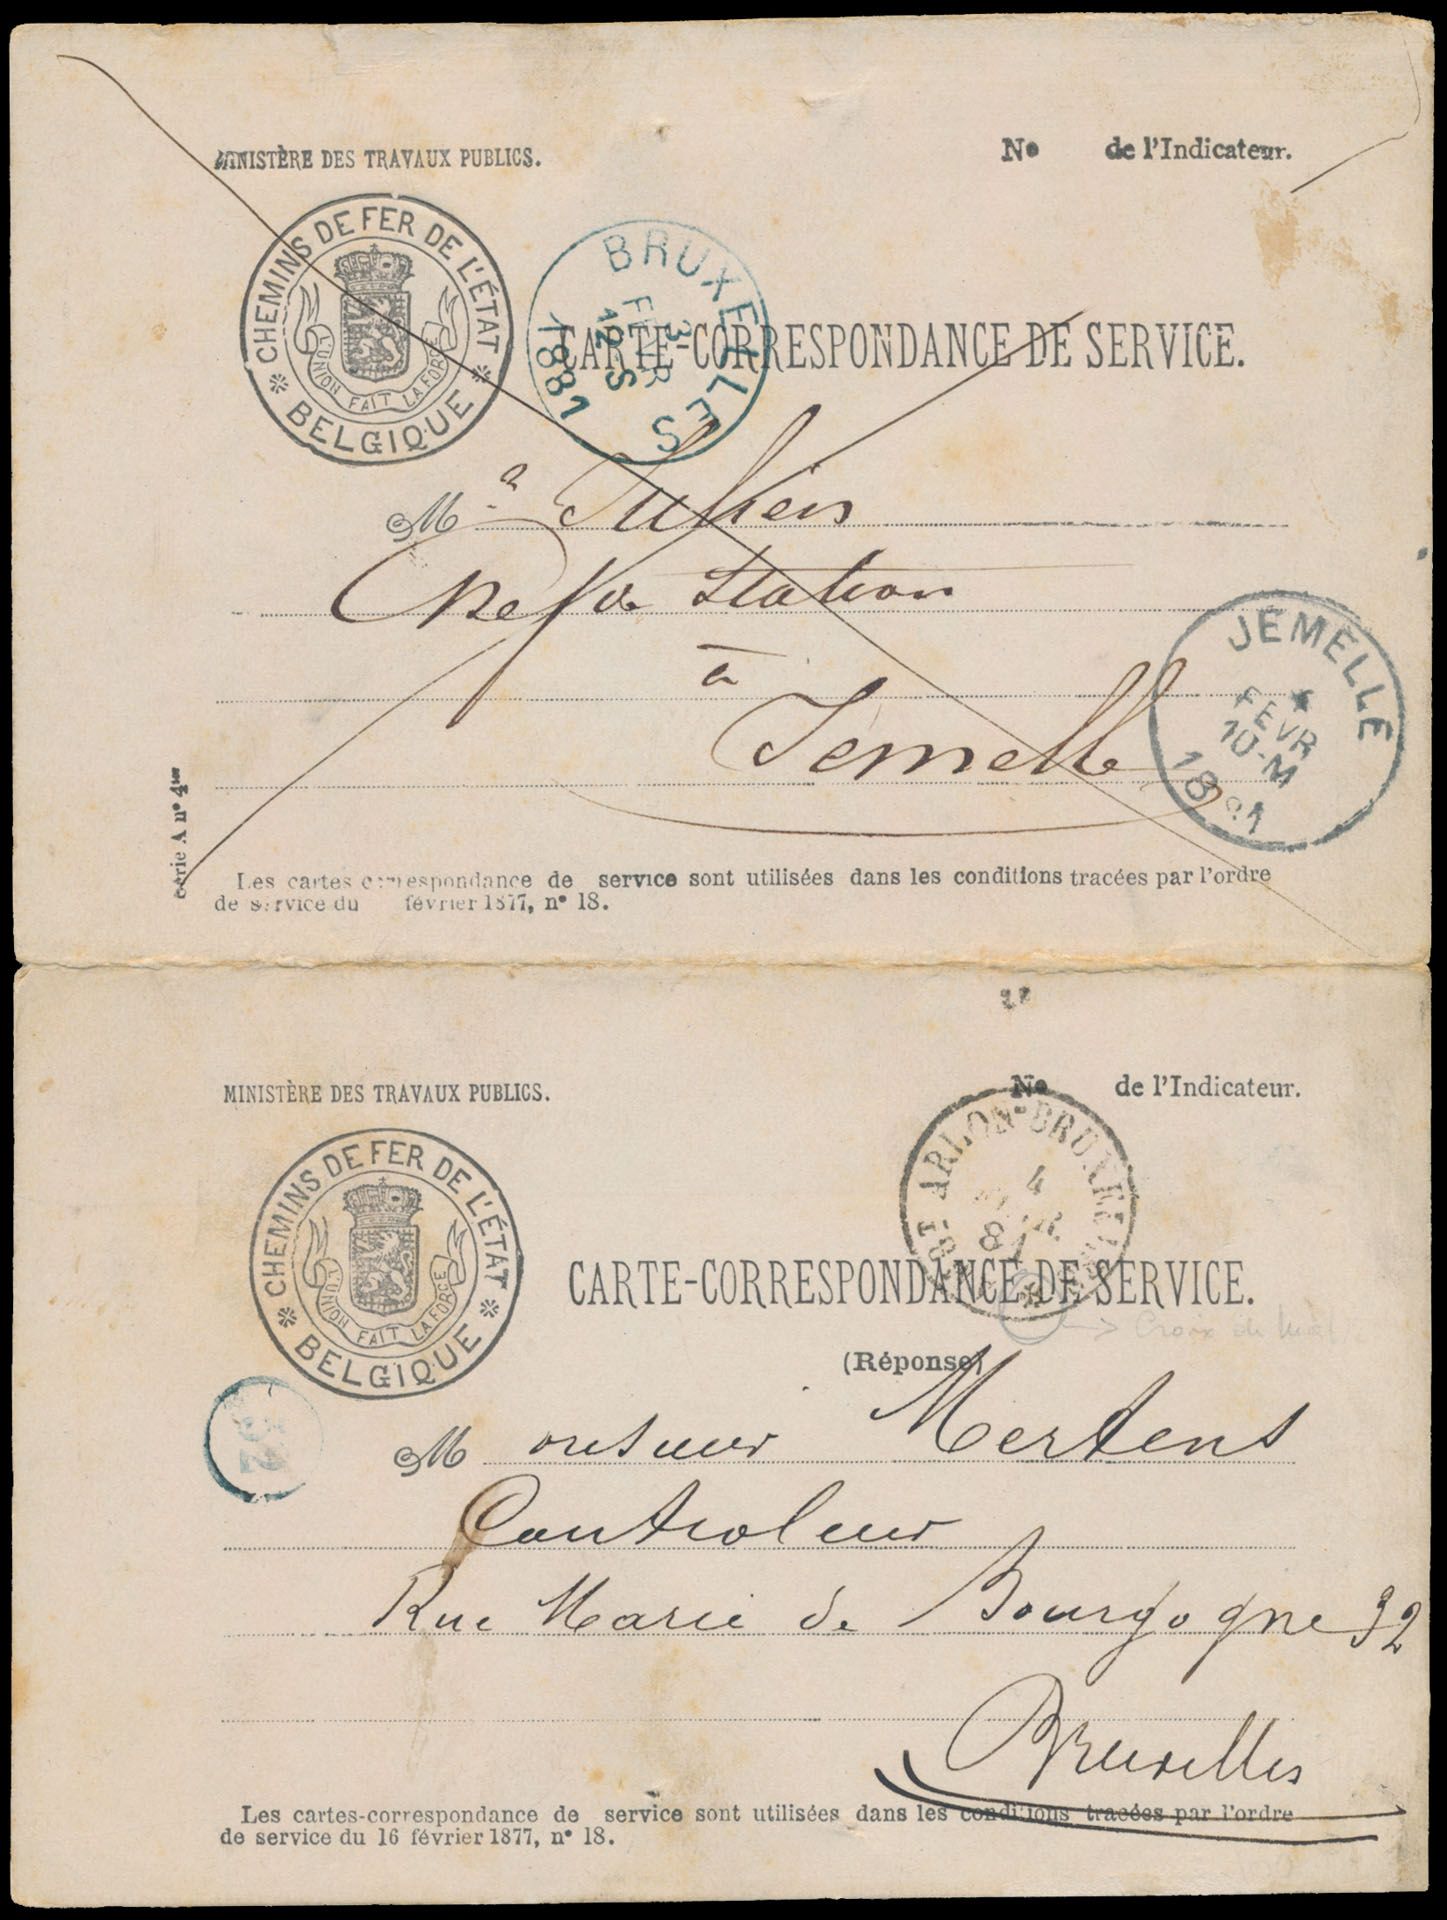 MINISTÈRE DES TRAVAUX PUBLICS.
No de l'Indicateur.
CHEMINS DE FER DE L'ÉTAT
BELGIQUE
L'UNION FAIT LA FORCE
BRUXELLES
3
FEVR
12-S
1881
CARTE-CORRESPONDANCE DE SERVICE.
M. à
Chef de Station
à
Jemelle
JEMELLE
FEVR
10-M
1881
Série A no 4
Les cartes correspondance de service sont utilisées dans les conditions tracées par l'ordre
de service du février 1877, no 18.
MINISTÈRE DES TRAVAUX PUBLICS.
No de l'Indicateur.
CHEMINS DE FER DE L'ÉTAT
BELGIQUE
L'UNION FAIT LA FORCE
ARLON-BRUXELLES
4
81
CARTE-CORRESPONDANCE DE SERVICE.
Croix de
(Réponse)
32
Monsieur Mertens
Controleur
Rue Marie de Bourgogne 32
Bruxelles
Les cartes-correspondance de service sont utilisées dans les conditions tracées par l'ordre
de service du 16 février 1877, no 18.